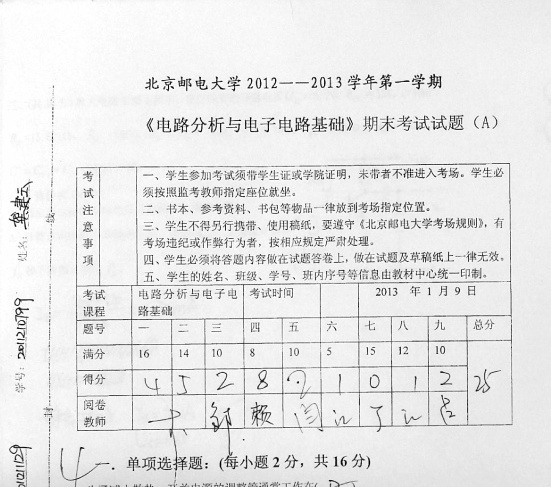 北京邮电大学2012——2013学年第一学期
《电路分析与电子电路基础》期末考试试题（A）
考试注意事项
一、学生参加考试须带学生证或学院证明，未带者不准进入考场。学生必
须按照监考教师指定座位就坐。
二、书本、参考资料、书包等物品一律放到考场指定位置。
三、学生不得另行携带、使用稿纸，要遵守《北京邮电大学考场规则》，有
考场违纪或作弊行为者，按相应规定严肃处理。
四、学生必须将答题内容做在试题答卷上，做在试题及草稿纸上一律无效。
五、学生的姓名、班级、学号、班内序号等信息由教材中心统一印制。
考试课程 电路分析与电子电路基础 考试时间 2013 年 1 月 9 日
题号 一 二 三 四 五 六 七 八 九 总分
满分 16 14 10 8 10 5 15 12 10
得分 4 5 2 8 2 1 0 1 2 25
阅卷教师
姓名：
学号：
4
一．单项选择题：(每小题 2 分，共 16 分)